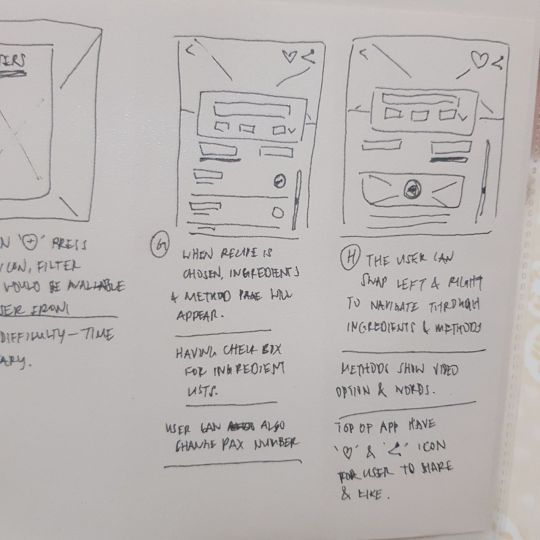 PRESS
ICON, FILTER
WOULD BE AVAILABLE
DIFFICULTY – TIME
G WHEN RECIPE IS
CHOSEN, INGREDIENTS
& METHOD PAGE WILL
APPEAR.
HAVING CHECK BOX
FOR INGREDIENT
LISTS.
USER CAN ALSO
CHANGE PAX NUMBER
H THE USER CAN
SWAP LEFT & RIGHT
TO NAVIGATE THROUGH
INGREDIENTS & METHODS
METHODS SHOW VIDEO
OPTION & WORDS.
TOP OF APP HAVE
'♡' & '<' ICON
FOR USER TO SHARE
& LIKE.